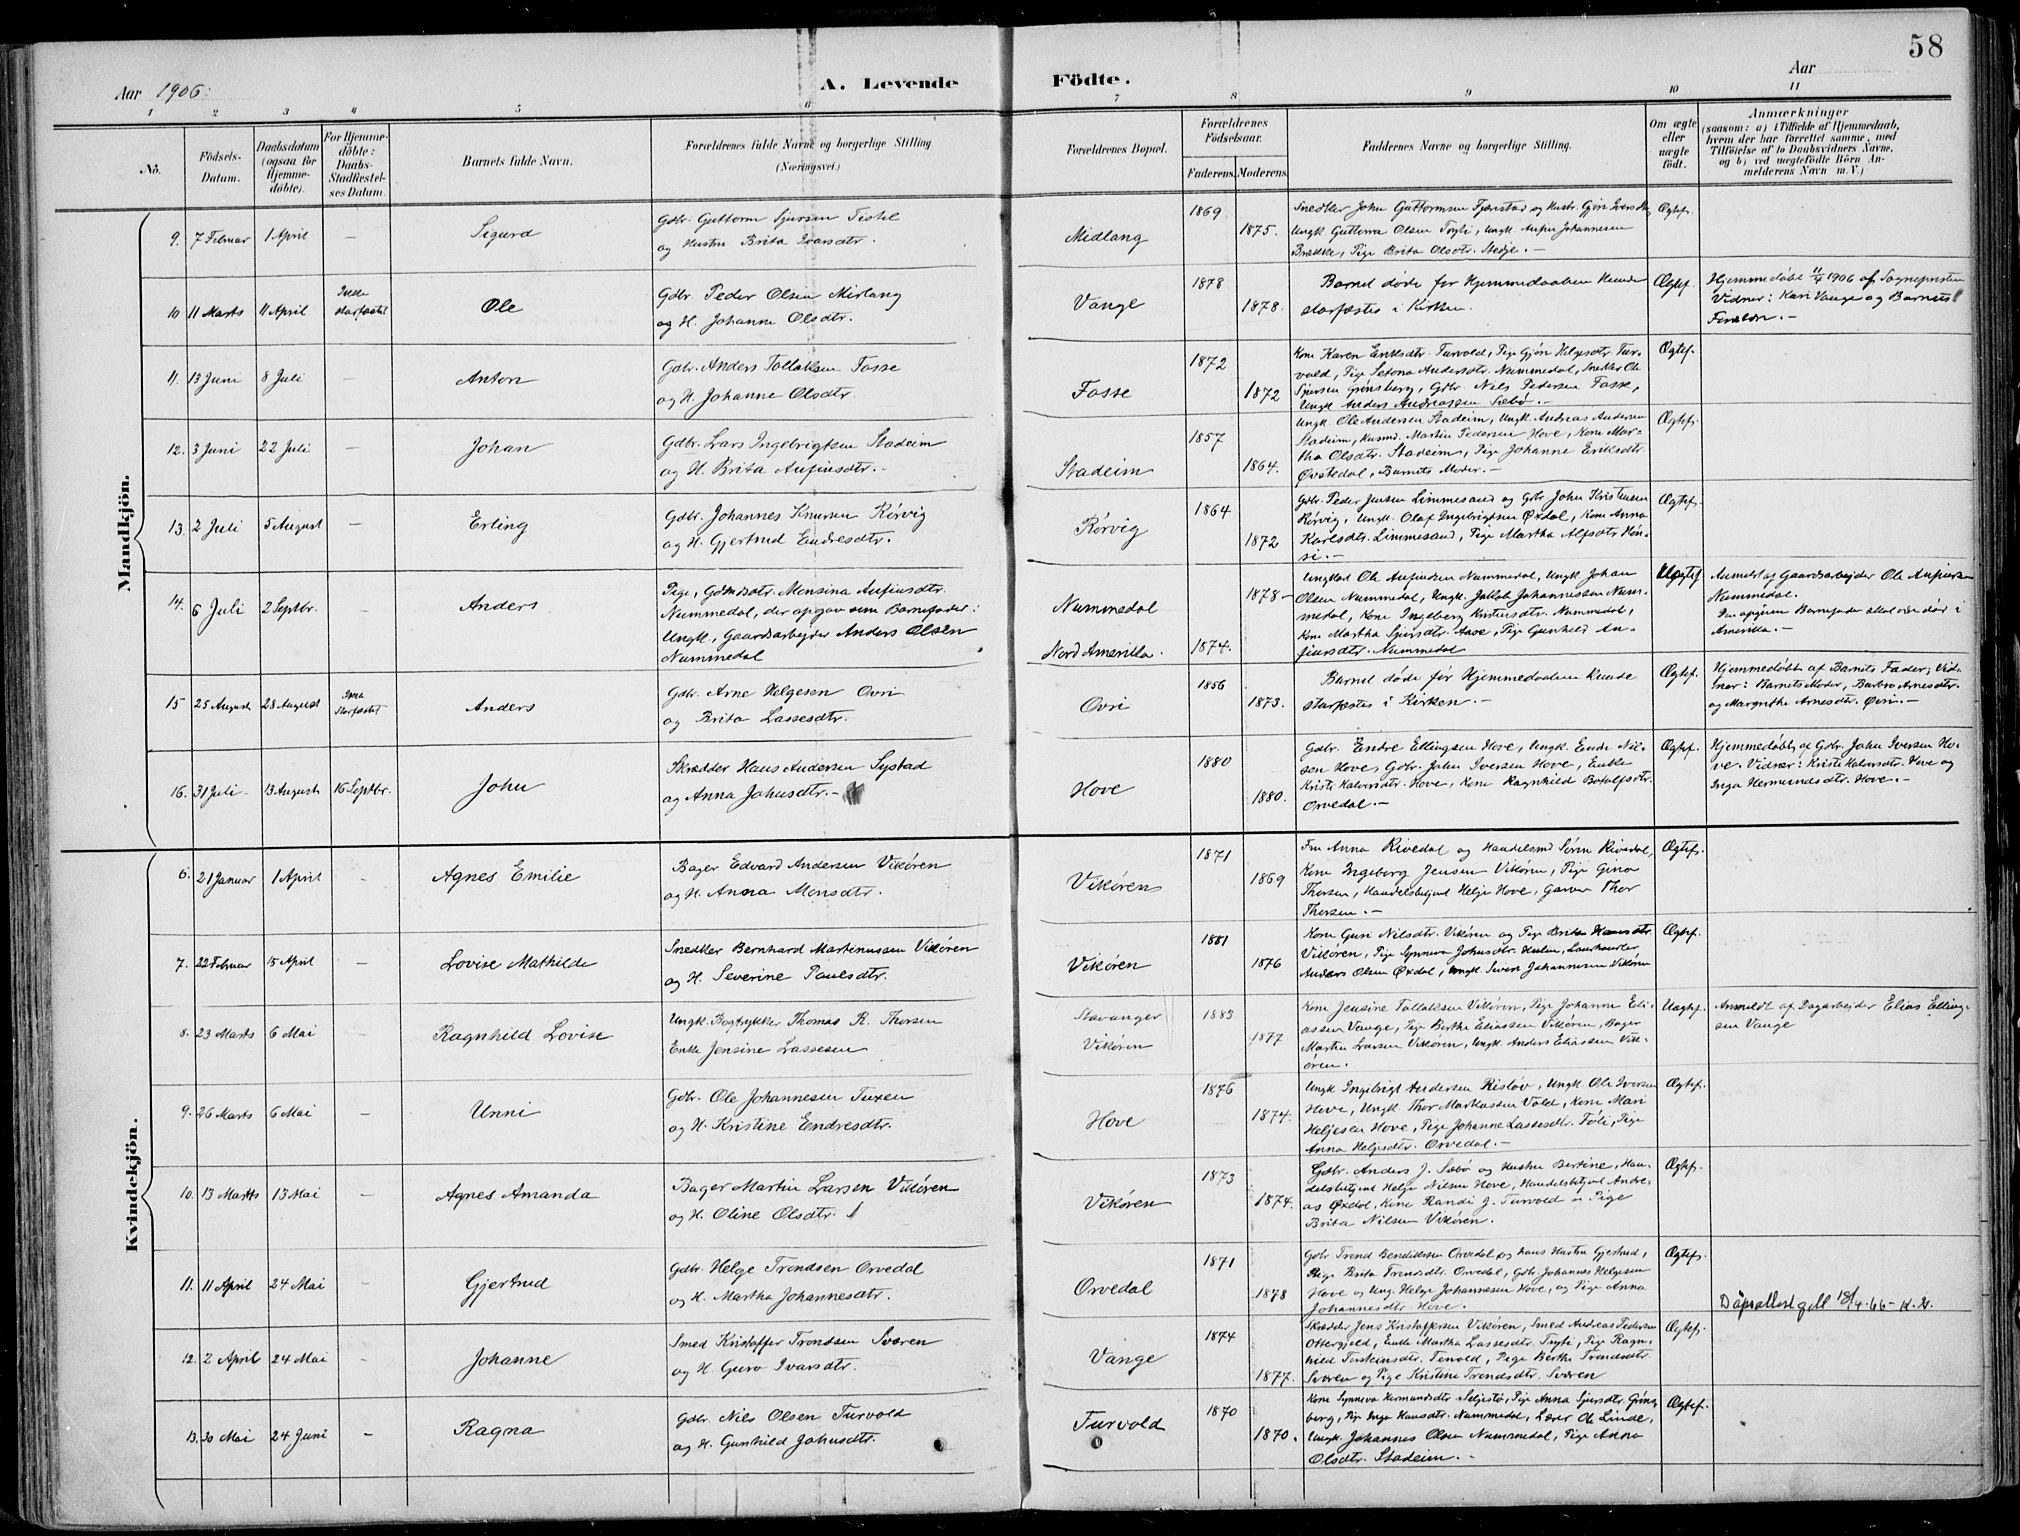 58
Aar 1906.
A. Levende Födte.
Aar
1 2 3 4 5 6 7 8 9 10 11
No.
Födsels-Datum.
Daabsdatum (ogsaa for Hjemmedöbte).
For Hjemmedöbte: Daabs-Stadfestelses Datum.
Barnets fulde Navn.
Forældrenes fulde Navne og borgerlige Stilling (Næringsvei.)
Forældrenes Bopæl.
Forældrenes Födselsaar.
Faderens. Moderens.
Faddernes Navne og borgerlige Stilling.
Om ægte eller uægte födt.
Anmærkninger
(saasom: a) i Tilfælde af Hjemmedaab, hvem der har forrettet samme, med Tilföielse af to Daabsvidners Navne, og b) ved uægtefödte Börn Anmelderens Navn m. V.)
Mandkjön.
9. 7 Februar 1 April — Sigurd
Gdbr. Guttorm Sjursen Tistel
og Hustru Brita Ivarsdtr.
Midlang 1869 1875.
Snedker John Guttormsen Fjærstad og Hustr. Gjøri Iversdtr,
Ungk. Guttorm Olsen Tryti, Ungk. Anfin Johannesen
Brække, Pige Brita Olsdtr. Stedje. —
Ægtef.
10 11 Marts 11 April Ikke starfæstet Ole
Gdbr. Peder Olsen Midlang
og H. Johanne Olsdtr.
Vange 1878 1878.
Barnet døde før Hjemmedaaben kunde
starfæstes i Kirken.
Ægtef.
Hjemmedøbt 11/4 1906 af Sognepresten
Vidner: Kari Vange og Barnets
Forældre. —
11. 13 Juni 8 Juli — Anton
Gdbr. Anders Tollaksen Fosse
og H. Johanne Olsdtr.
Fosse 1872 1872
Kone Karen Eriksdtr. Turvold, Pige Gjøri Helgesdtr. Tur-
vold, Pige Setona Andersdtr. Nummedal, Snedker Ole
Sjursen Grønsberg, Gdbr. Nils Pedersen Fosse,
Ungk. Anders Andreassen Sæbø. —
Ægtef.
12. 3 Juni 22 Juli — Johan
Gdbr. Lars Ingebrigtsen Stadeim
og H. Brita Anfinsdtr. —
Stadeim 1857 1864.
Ungk. Ole Andersen Stadeim, Ungk. Andreas Andersen
Stadeim, Husmd. Martin Pedersen Hove, Kone Mar-
tha Olsdtr. Stadeim, Pige Johanne Eriksdtr.
Øvstedal, Barnets Moder. —
Ægtef.
13. 2 Juli 5 August — Erling
Gdbr. Johannes Knutsen Rørvig
og H. Gjertrud Endresdtr.
Rørvig 1864 1872
Gdbr. Peder Jensen Limmesand og Gdbr. John Kristensen
Rørvig, Ungk. Olaf Ingebrigtsen Øxdal, Kone Anna
Karlsdtr. Limmesand, Pige Martha Alfsdtr. Høn-
si. —
Ægtef.
14. 6 Juli 2 Septbr. Anders
Pige, Gdmdsdtr. Monsina Anfinsdtr.
Nummedal, der opgav som Barnefader:
Ungk, Gaardsarbejder Anders Olsen
Nummedal
Nummedal
Nord Amerika.
1878 — 1874.
Ungkar Ole Anfindsen Nummedal, Ungk. Johan
Olsen Nummedal, Ungk. Jakob Johannessen Num-
medal, Kone Ingeborg Kristensdtr. Nummedal,
Kone Martha Sjursdtr. Aase, Pige Gunhild An-
finsdtr. Nummedal
Uægtef.
Anmeldt af Gaardsarbejder Ole Anfinsen
Nummedal.
Den opgivne Barnefader skal være død i
Amerika. —
15 25 August 28 August Ikke starfæstet Anders
Gdbr. Arne Helgesen Ovri
og Brita Lassesdtr.
Ovri 1856 1873.
Barnet døde før Hjemmedaaben kunde
starfæstes i Kirken. —
Ægtef.
Hjemmedøbt af Barnets Fader; Vid-
ner: Barnets Moder, Barbro Arnesdtr.
og Margrethe Arnesdtr. Øvri. —
16. 31 Juli 13 August 16 Septbr. John
Skrædder Hans Andersen Systad
og Anna Johnsdtr. —
Hove 1880 1880.
Gdbr. Endre Ellingsen Hove, Ungk. Endre Nil-
sen Hove, Gdbr. John Iversen Hove, Enke
Kristi Halvorsdtr. Hove, Kone Ragnhild Botolfsdtr.
Orvedal. —
Ægtef.
Hjemmedøbt af Gdbr. John Iversen Ho-
ve. Vidner: Kristi Halvorsdtr. Hove og
Inga Hermundsdtr. Hove. —
Kvindekjön.
6. 21 Januar 1 April — Agnes Emilie
Bager Edvard Andersen Vikøren
og H. Anna Monsdtr.
Vikøren 1871 1869
Fru Anna Rivedal og Handelsmd Sørin Rivedal,
Kone Ingeborg Jensen Vikøren, Pige Gina
Thorsen, Handelsbetjent Helge Hove, Garver Thor
Thorsen. —
Ægtef.
7. 22 Februar 15 April — Lovise Mathilde
Snedker Bernhard Martinussen Vikøren
og H. Severine Paulsdtr.
Vikøren 1881 1876
Kone Guri Nilsdtr. Vikøren og Pige Brita Hansdtr
Vikøren, Pige Synneva Johnsdtr. Hulin, Landhandler
Anders Olsen Øxdal, Ungk. Severi Johannesen Vikøren
Ægtef.
8. 23 Marts 6 Mai — Ragnhild Lovise
Ungk. Bogtrykker Thomas R. Thorsen
Enke Jensine Lassesen
Stavanger
Vikøren
1883 1877
Kone Jensine Tollaksen Vikøren, Pige Johanne Eli-
assen Vange, Pige Berthe Eliassen Vikøren, Bager
Martin Larsen Vikøren, Ungk. Anders Eliassen Vik-
øren.
Uægtef.
Anmeldt af Dagarbejder Elias Elling-
sen Vange
9. 26 Marts 6 Mai — Unni
Gdbr. Ole Johannesen Tuxen
og H. Kristine Endresdtr.
Hove 1876 1874.
Ungk Ingebrigt Andersen Risløv, Ungk. Ole Iversen
Hove, Ungk Thor Markussen Vold, Kone Mari
Helgesen Hove, Pige Johanne Lassesdtr. Føli, Pige
Anna Helgesdtr. Orvedal. —
Ægtef.
10. 13 Marts 13 Mai — Agnes Amanda
Bager Martin Larsen Vikøren
og H. Oline Olsdtr.
Vikøren 1873 1874.
Gdbr. Anders J. Sæbø og Hustru Bertine, Han-
delsbetjent Helge Nilsen Hove, Handelsbetjent Andre-
as Øxdal, Kone Randi J. Turvold og Pige
Brita Nilsen Vikøren.
Ægtef.
11. 11 April 24 Mai — Gjertrud
Gdbr. Helge Trondsen Orvedal
og H. Martha Johannesdtr.
Orvedal 1871 1878
Gdbr Trond Bendiktsen Orvedal og hans Hustru Gjertrud,
Pige Brita Trondsdtr. Orvedal, Gdbr. Johannes Helgesen
Hove og Ung. Helge Johannesen Hove, og Pige Anna
Johannesdtr Hove.
Ægtef.
Dåpsattest gitt 18/4-66 - K.V.
12. 2 April 24 Mai — Johanne
Smed Kristoffer Trondsen Sværen
og H. Guro Ivarsdtr.
Vange 1874 1877.
Skrædder Jens Kristoffersen Vikøren, Smed Andreas Pedersen
Ottergjeld, Enke Martha Lassesdtr. Tryti, Pige Ragn-
hild Torsteinsdtr. Tenold, Pige Berthe Trondsdtr.
Sværen og Pige Kristine Trondsdtr. Sværen
Ægtef.
13. 30 Mai 24 Juni — Ragna
Gdbr. Nils Olsen Turvold
og H. Gunhild Johnsdtr.
Turvold 1870 1870.
Kone Synneva Hermundsdtr Seljestø, Pige Anna Sjursdtr. Grøns-
berg, Pige Inga Hansdtr. Nummedal, Lærer Ole Linde,
Ungk. Johannes Olsen Nummedal, Pige Anna
Olsdtr. Stadeim. —
Ægtef.